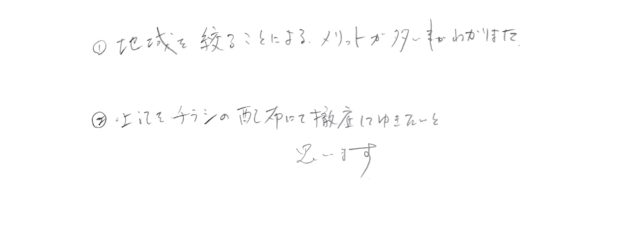 ① 地域を絞ることによるメリットが多い事がわかりました
② 上記をチラシの配布にて徹底してゆきたいと
思います